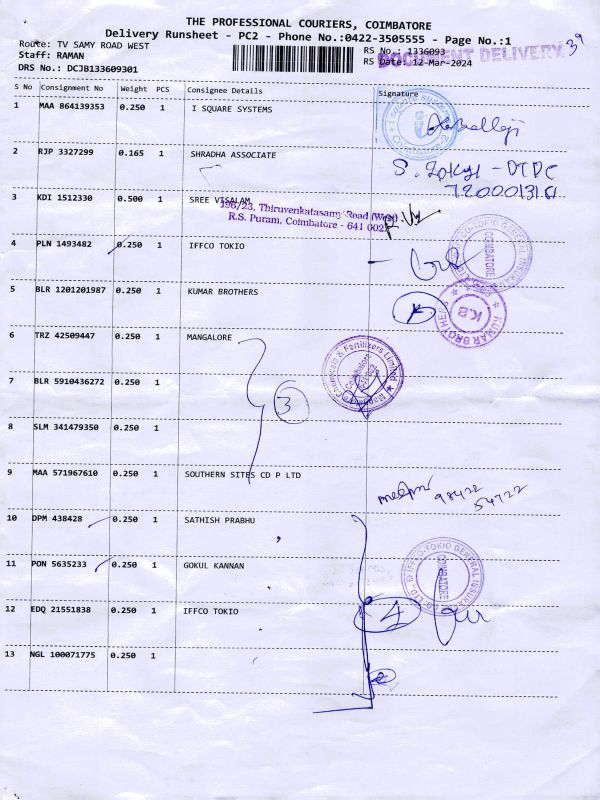 THE PROFESSIONAL COURIERS, COIMBATORE
Delivery Runsheet - PC2 - Phone No.:0422-3505555 - Page No.:1
Route: TV SAMY ROAD WEST
Staff: RAMAN
DRS No.: DCJB133609301
RS No.: 1336093
RS Date: 12-Mar-2024
DOCUMENT DELIVERY
39
S No Consignment No Weight PCS Consignee Details Signature
1 MAA 864139353 0.250 1 I SQUARE SYSTEMS
2 RJP 3327299 0.165 1 SHRADHA ASSOCIATE
3 KDI 1512330 0.500 1 SREE VISALAM
196/23, Thiruvenkatasamy Road (West)
R.S. Puram, Coimbatore - 641 002
4 PLN 1493482 0.250 1 IFFCO TOKIO
COIMBATORE
5 BLR 1201201987 0.250 1 KUMAR BROTHERS
KUMAR BROTHERS
K.B
6 TRZ 42509447 0.250 1 MANGALORE
Chemicals & Fertilizers Limited
7 BLR 5910436272 0.250 1
3
8 SLM 341479350 0.250 1
9 MAA 571967610 0.250 1 SOUTHERN SITES CD P LTD
98422
54722
10 DPM 438428 0.250 1 SATHISH PRABHU
11 PON 5635233 0.250 1 GOKUL KANNAN
IFFCO-TOKIO GENERAL INSURANCE CO. LTD.
COIMBATORE
12 EDQ 21551838 0.250 1 IFFCO TOKIO
4
13 NGL 100071775 0.250 1